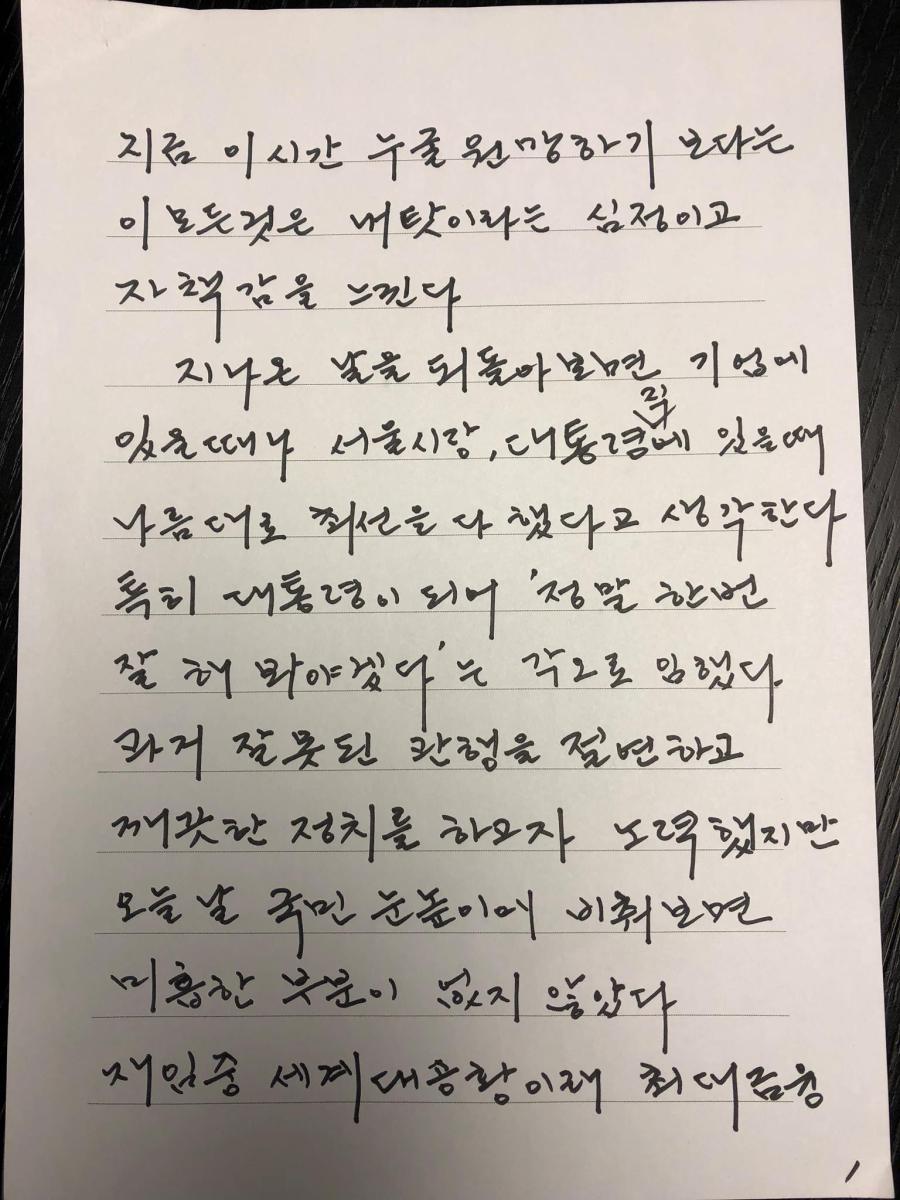 지금 이시간 누굴 원망하기 보다는
이 모든것은 내탓이라는 심정이고
자책감을 느낀다
지나온 날을 되돌아보면 기업에
있을때나 서울시장, 대통령직에 있을때
나름대로 최선을 다 했다고 생각한다
특히 대통령이 되어 '정말 한번
잘 해 봐야겠다'는 각오로 임했다
과거 잘못된 관행을 절연하고
깨끗한 정치를 하고자 노력했지만
오늘날 국민 눈높이에 비춰보면
미흡한 부분이 없지 않았다
재임중 세계대공황이래 최대금융
1